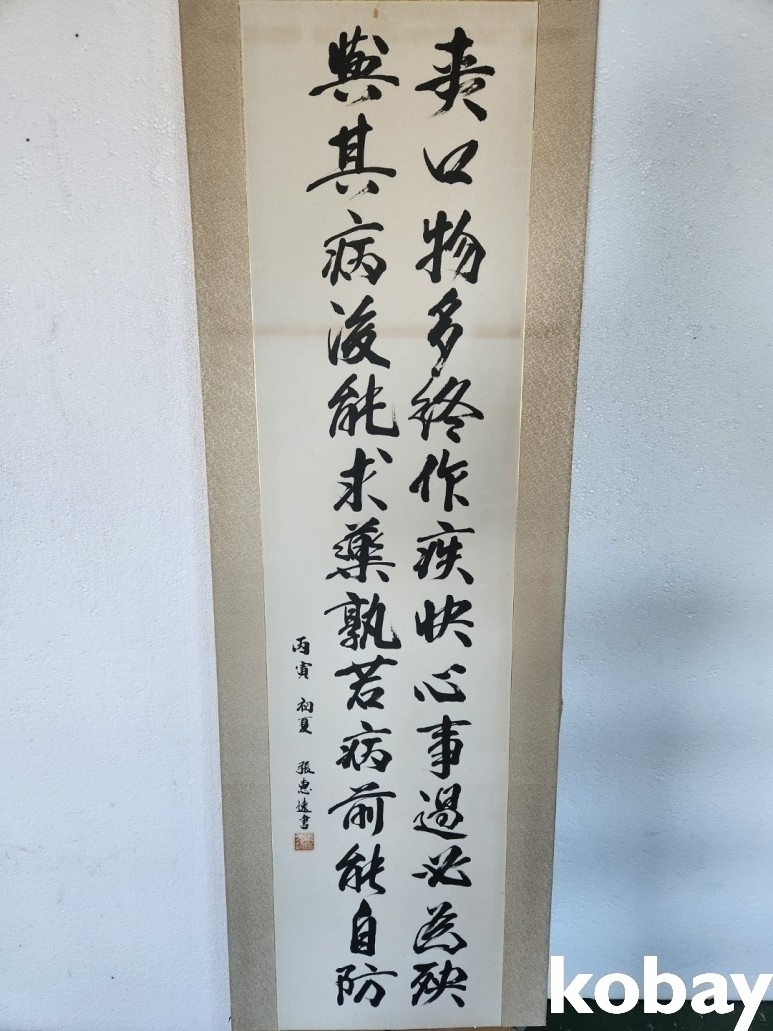 爽口物多終作疾快心事過必爲殃
與其病後能求藥孰若病前能自防
丙寅 初夏 張惠遠書
kobay